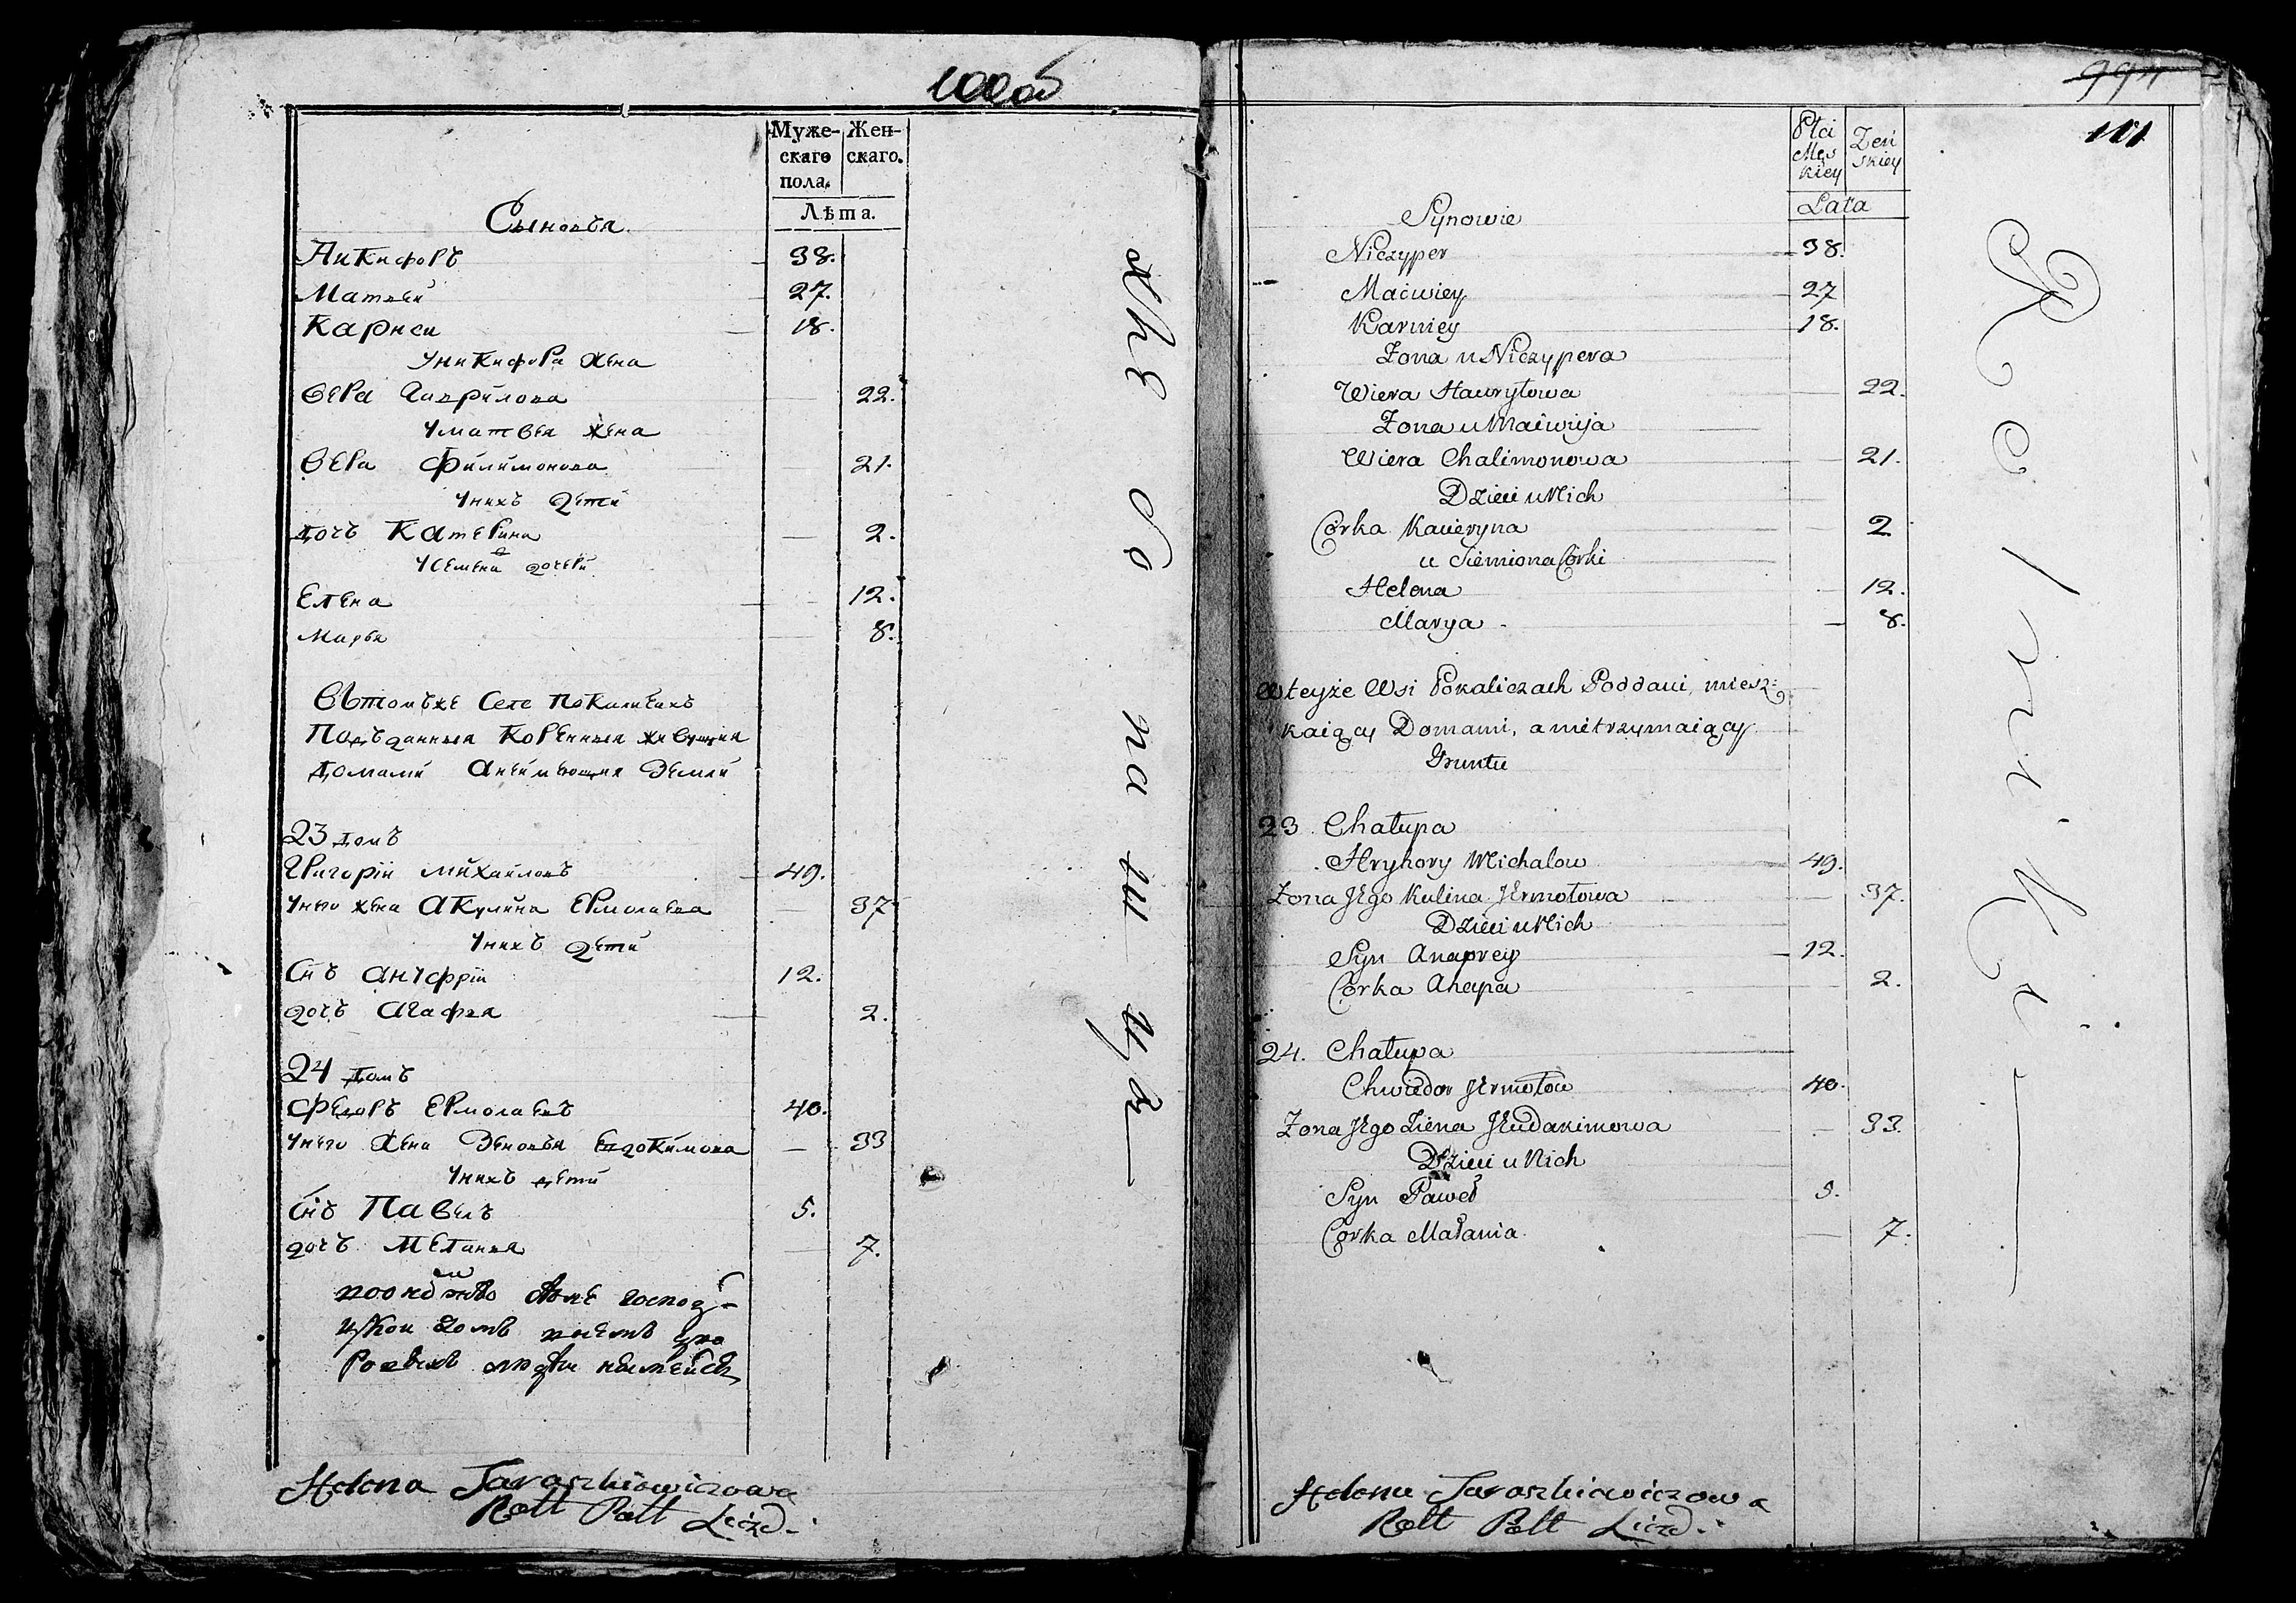 100об
Муже- Жен-
скаго скаго.
пола.
Лѣта.
Сыновья
Никифоръ 38.
Матвей 27.
Карней 18.
У Никифора жена
Вера Гаврилова 22.
У Матвея жена
Вера Филимонова 21.
У них дети
дочь Катерина 2.
У Семена дочери
Елена 12.
Марья 8.
В томъ же селе Покаличахъ
Подъданныя коренныя живущия
домами а неимеющия земли
23 домъ
Григорій Михайловъ 49.
У него жена Акулина Ермолаева 37
У нихъ дети
Снъ Ануфрій 12.
дочь Агафья 2.
24 домъ
Федоръ Ермолаевъ 40.
У него жена Зеновья Евдокимова 33
У нихъ дети
Снъ Павелъ 5.
дочь Меланья 7.
Helena Jaraszkiewiczowa
Rott Patt
994
101
Płci Żeń
Męs skiey
kiey
Lata
Synowie
Niczyper 38.
Maćwiey 27
Karniey 18.
Żona u Niczypera
Wiera Hawryłowa 22.
Żona u Maćwieja
Wiera Chalimonowa 21.
Dzieci u Nich
Córka Kacieryna 2
u Siemiona Córki
Helena 12.
Marya 8.
W teyże Wsi Pokaliczach Poddani, miesz=
kaiący Domami, a nie trzymaiący
Gruntu
23 Chałupa
Hryhory Michałow 49.
Żona Jego Kulina Jermołowa 37.
Dzieci u Nich
Syn Anaprey 12.
Córka Ahapa 2.
24. Chałupa
Chwiedor Jermołow 40.
Żona Jego Ziena Jeudakimowa 33.
Dzieci u Nich
Syn Paweł 5.
Córka Małania 7.
Helena Jaraszkiewiczowa
Rott Patt